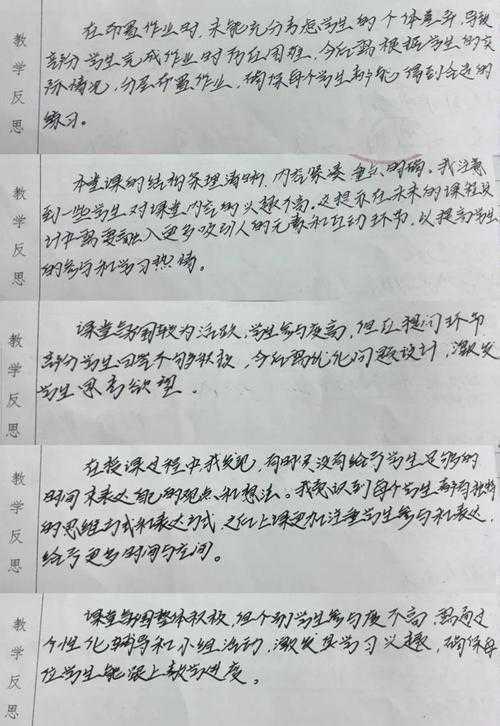 教学反思
在布置作业时，未能充分考虑学生的个体差异，导致
部分学生完成作业时存在困难，今后需根据学生的实
际情况，分层布置作业，确保每个学生都能得到合适的
练习。
教学反思
本堂课的结构条理清晰，内容紧凑重点明确。我注意
到一些学生对课堂内容的兴趣不高。这提示在未来的课程设
计中需要融入更多吸引人的元素和互动环节，以提高学生
的参与和学习热情。
教学反思
课堂氛围较为活跃，学生参与度高，但在提问环节
部分学生回答不够积极，今后需优化问题设计，激发
学生思考欲望。
教学反思
在授课过程中我发现，有时候没有给予学生足够的
时间来表达自己的观点和想法。我意识到每个学生都有独特
的思维方式和表达方式，之后上课更加注重学生参与和表达，
给予更多时间与空间。
教学反思
课堂氛围整体积极，但个别学生参与度不高，需通过
个性化辅导和小组活动，激发其学习兴趣，确保每
位学生能跟上教学进度。